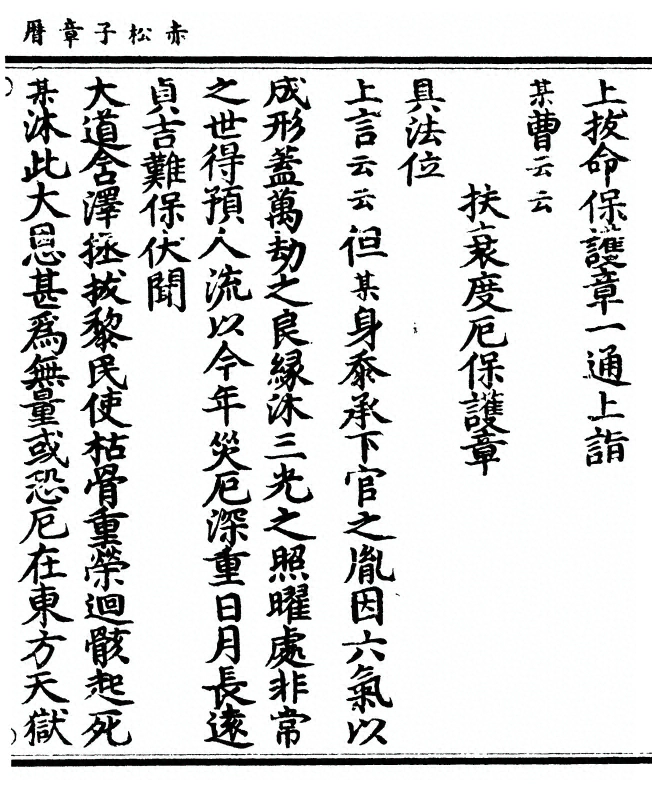 赤松子章曆
上拔命保護章一通上詣
某曹云云
扶衰度厄保護章
具法位
上言云云但某身忝承下官之胤因六氣以
成形蓋萬劫之良緣沐三光之照曜處非常
之世得預人流以今年災厄深重日月長遠
貞吉難保伏聞
大道含澤拯拔黎民使枯骨重榮迴骸起死
某沐此大恩甚爲無量或恐厄在東方天獄